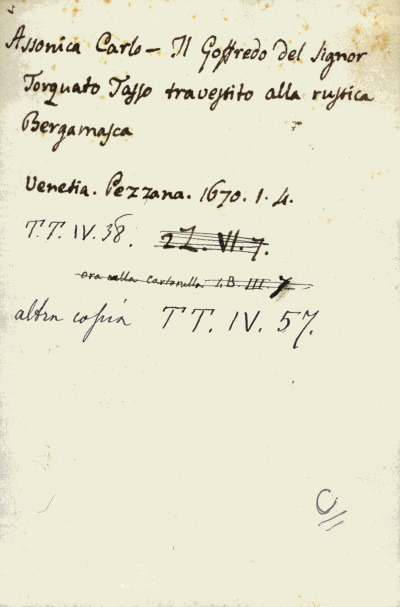 Assonica Carlo – Il Goffredo del Signor
Torquato Tasso travestito alla rustica
Bergamasca
Venetia. Pezzana. 1670. 1. 4.
T.T. IV. 38. 2Z. VI. 7.
ora nella Cartonella I.B. III. 7
altra copia TT. IV. 57.
C